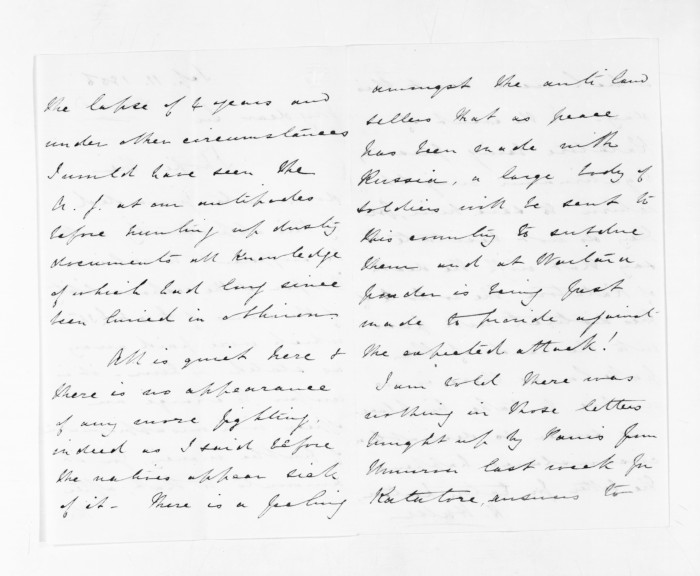 the lapse of 4 years and
under other circumstances
I would have seen the
A. G. at our antipodes
before hunting up dusty
documents all knowledge
of which had long since
been buried in oblivion.
All is quiet here &
there is no appearance
of any more fighting.
indeed as I said before
the natives appear sick
of it - There is a feeling
amongst the anti land
sellers that as peace
has been made with
Russia, a large body of
soldiers will be sent to
this country to subdue
them and at Waitara
powder is being fast
made to provide against
the expected attack!
I am told there was
nothing in those letters
brought up by Parris from
last week for
Katatore, answers to